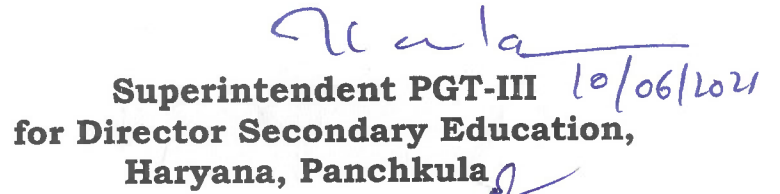 Superintendent PGT-III 10/06/2021
for Director Secondary Education,
Haryana, Panchkula